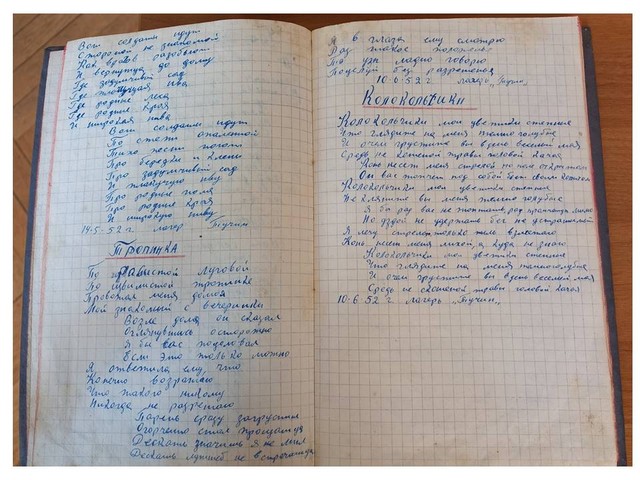 Вот солдаты идут
Стороной не знакомой
Как врагов разобьют
И вернутся до дому
Где задумчивый сад
Где плакущая ива
Где родные леса
Где родные края
И широкая нива
Вот солдаты идут
По степи опаленной
Тихо песню поют
Про березки и клены
Про задумчивый сад
И плакучую иву
Про родные поля
Про родные края
И широкую ниву
19-5-52 г лагер Тучин
Тропинка
По росистой луговой
По извилистой тропинке
Провожал меня домой
Мой знакомый с вечеринки
Возле дома он сказал
Оглянувшись осторожно
Я бы вас поцеловал
Если это только можно
Я ответила ему, что
Конечно возражаю
Что такого никому
Никогда не разрешаю
Парень сразу загрустил
Огорченно стал прощаться
Дескать значить я не мил
Дескать лучшей не встречаться
Я в глаза ему смотрю
Раз такое положенье
То уж ладно говорю
Поцелуй без разрешенья
10.6.52 г лагерь "Тучин"
Колокольчики
Колокольчики мои цветики степные
Что глядите на меня темно голубые
И о чем грустите вы в день веселый мая
Средь не кошеной травы головой качая
Конь несет меня стрелой на поле открытом
Он вас топчет под собой бьет своим копытом
Колокольчики мои цветики степные
Не кляните вы меня темно голубые
Я бы рад вас не топтать, рад промчаться мимо
Но уздой не удержать бег не удержимый
Я лечу стрелой только пыль взметаю
Конь несет меня лихой, а куда не знаю
Колокольчики мои цветики степные
Что глядите на меня темноголубые
И о чем грустите вы в день веселый мая
Средь не скошеной травы головой качая
10-6-52 г лагерь "Тучин"